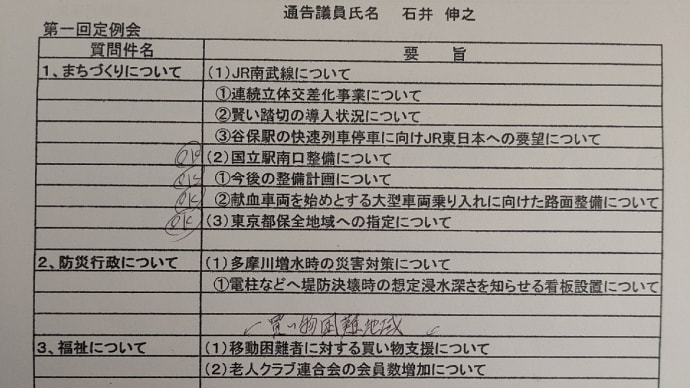 通告議員氏名　石井　伸之
第一回定例会
質問件名　要　旨
1、まちづくりについて　(1)JR南武線について
①連続立体交差化事業について
②賢い踏切の導入状況について
③谷保駅の快速列車停車に向けJR東日本への要望について
OK　(2)国立駅南口整備について
OK　①今後の整備計画について
OK　②献血車両を始めとする大型車両乗り入れに向けた路面整備について
OK　(3)東京都保全地域への指定について
2、防災行政について　(1)多摩川増水時の災害対策について
①電柱などへ堤防決壊時の想定浸水深さを知らせる看板設置について
買い物困難地域
3、福祉について　(1)移動困難者に対する買い物支援について
(2)老人クラブ連合会の会員数増加について